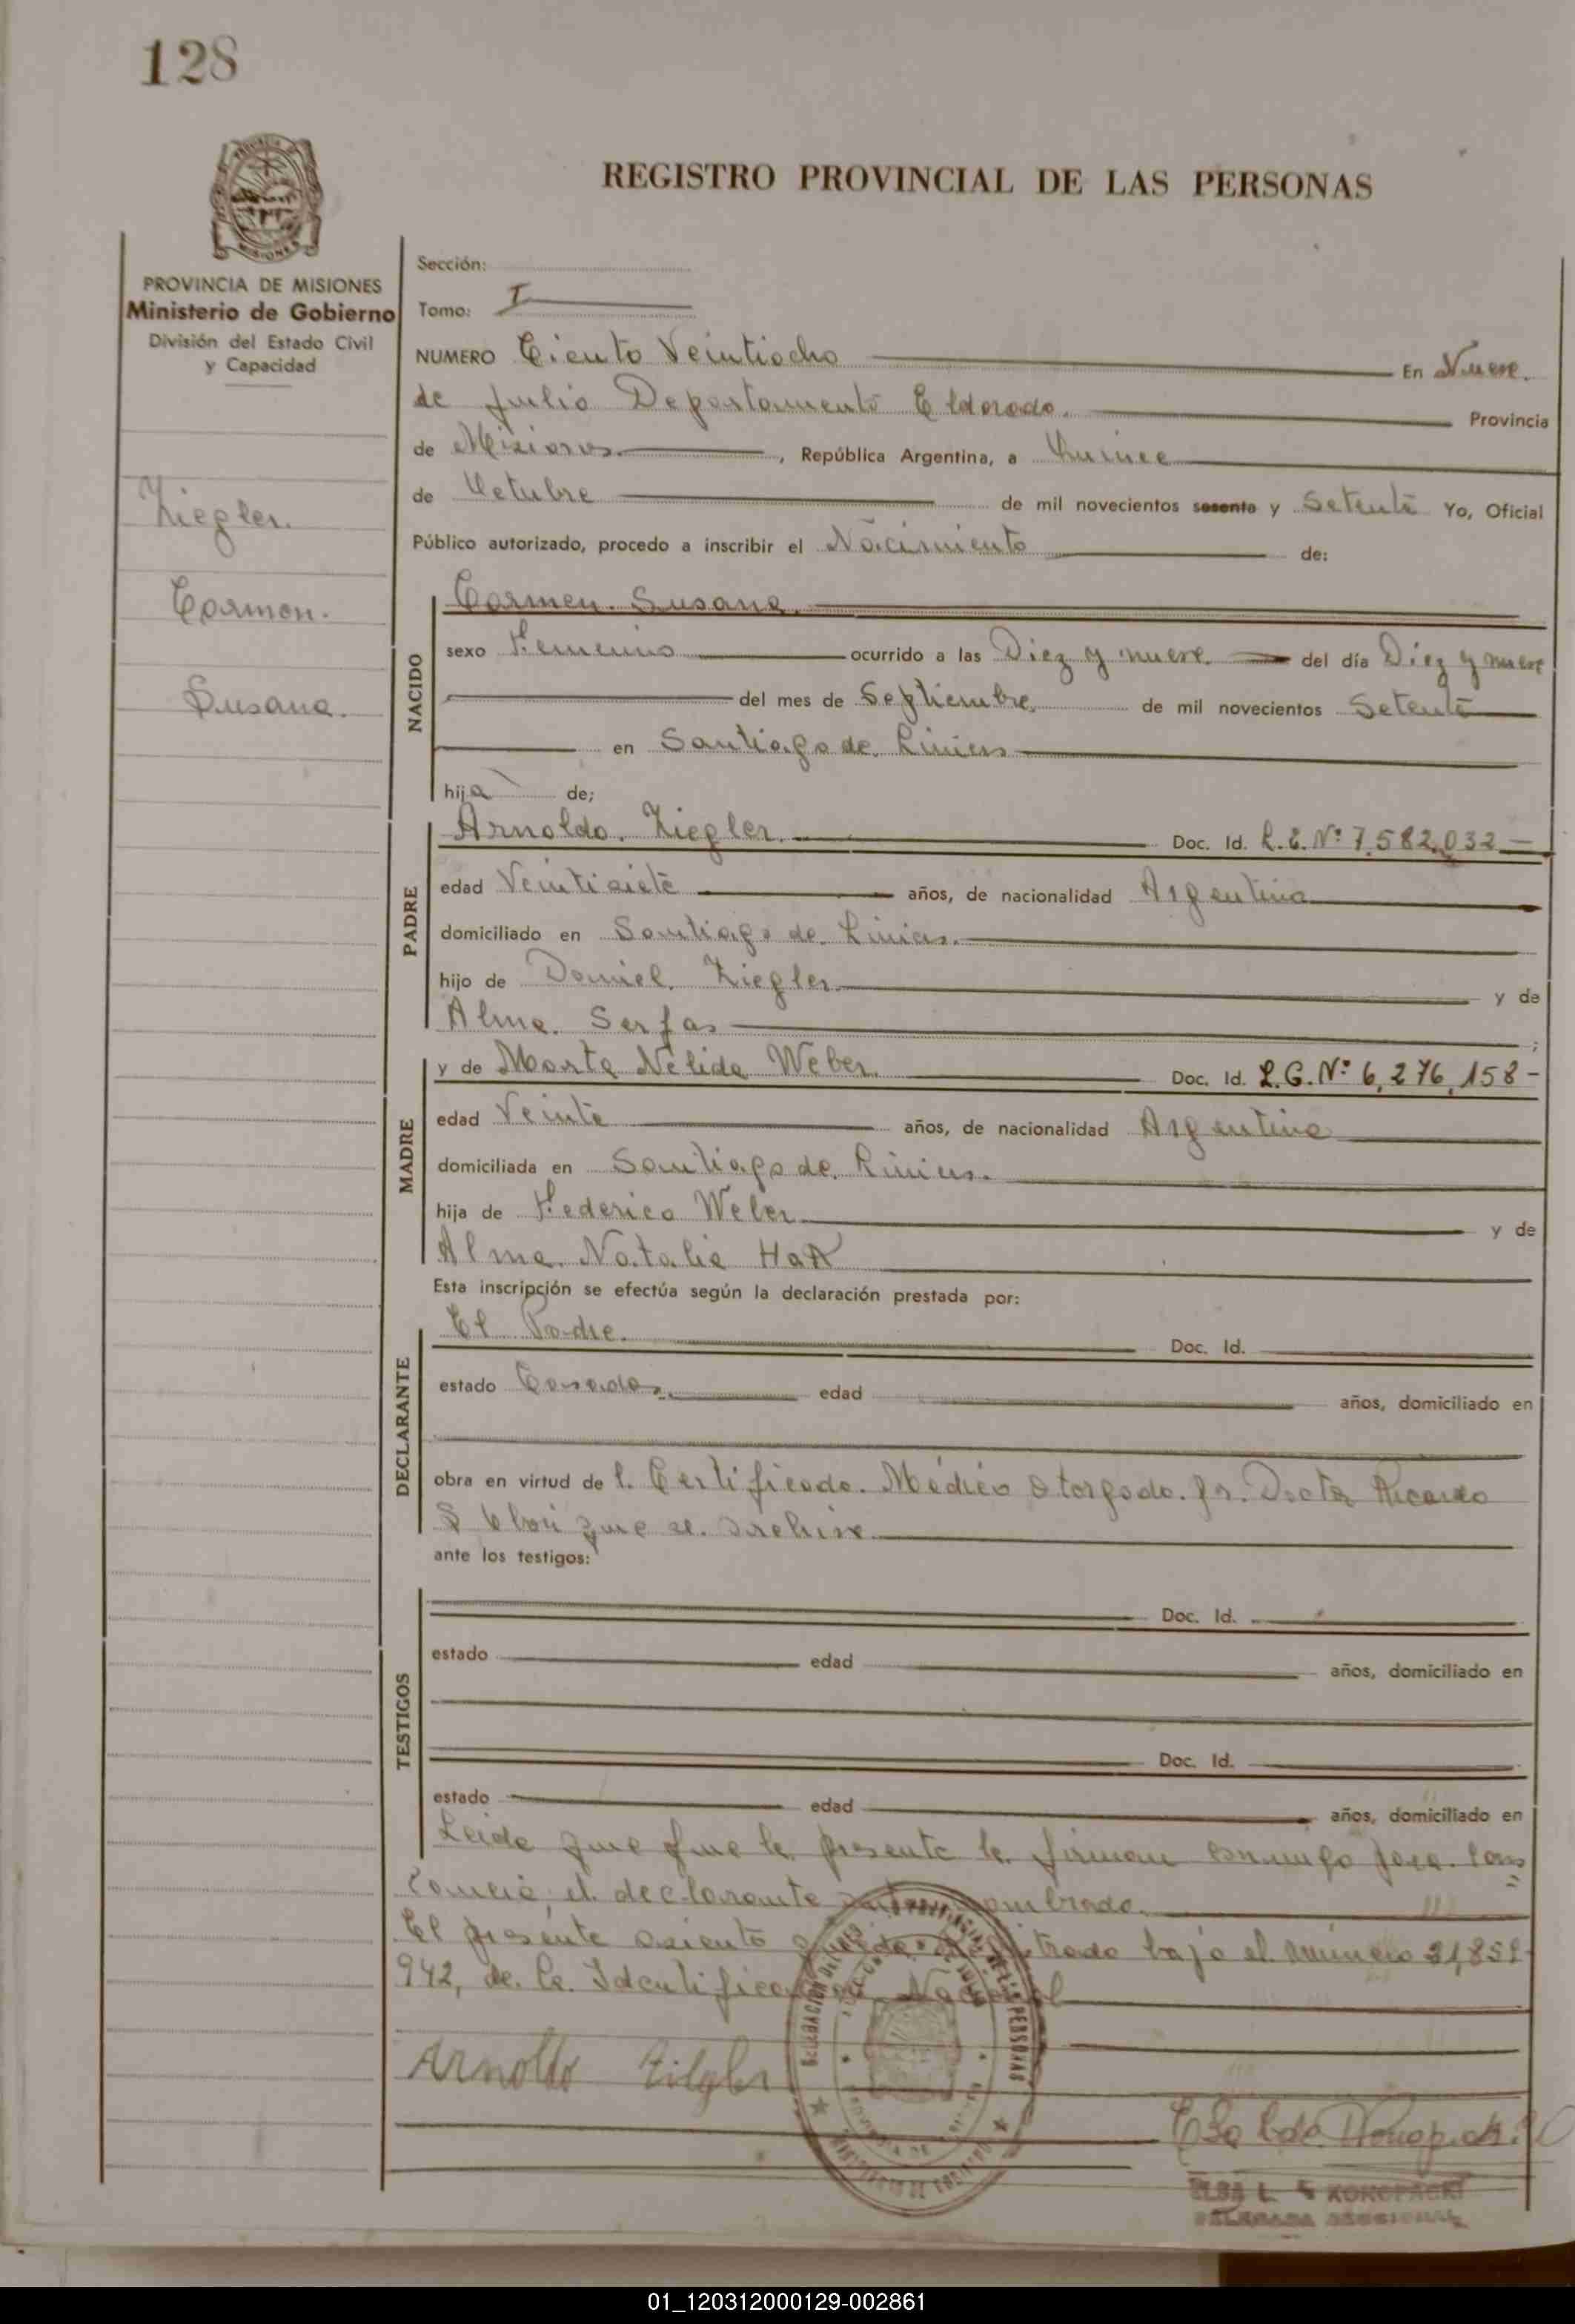 128
REGISTRO PROVINCIAL DE LAS PERSONAS
MISIONES
PROVINCIA DE MISIONES
Ministerio de Gobierno
División del Estado Civil
y Capacidad
Ziegler.
Carmen.
Susana.
Sección:
Tomo: I
NUMERO Ciento Veintiocho En Nueve.
de Julio Departamento Eldorado. Provincia
de Misiones. , República Argentina, a Quince
de Octubre de mil novecientos sesenta y Setenta Yo, Oficial
Público autorizado, procedo a inscribir el Nacimiento de:
NACIDO
Carmen. Susana.
sexo Femenino ocurrido a las Diez y nueve. del día Diez y nueve
del mes de Septiembre. de mil novecientos Setenta
en Santiago de Liniers
hija de;
PADRE
Arnoldo. Ziegler. Doc. Id. L.E. Nº 7.582.032
edad Veintisiete años, de nacionalidad Argentina
domiciliado en Santiago de Liniers.
hijo de Daniel. Ziegler y de
Alma. Serfas ;
MADRE
y de Marta Nélida Weber. Doc. Id. L.C. Nº 6,276,158-
edad Veinte años, de nacionalidad Argentina
domiciliada en Santiago de Liniers.
hija de Federico Weber y de
Alma Natalia
Esta inscripción se efectúa según la declaración prestada por:
DECLARANTE
El Padre. Doc. Id.
estado Casado. edad años, domiciliado en
obra en virtud de l. Certificado. Médico Otorgado. Doctor Ricardo
que se. archiva
ante los testigos:
TESTIGOS
Doc. Id.
estado edad años, domiciliado en
Doc. Id.
estado edad años, domiciliado en
Leida que fue la presente la firman conmigo para. cons
tancia, el declarante nombrado.
El presente asiento bajo el número 21,851
942, de la Identificación Nacional
DE LAS PERSONAS
Arnoldo Ziegler
ELBA L. KONOPACKI